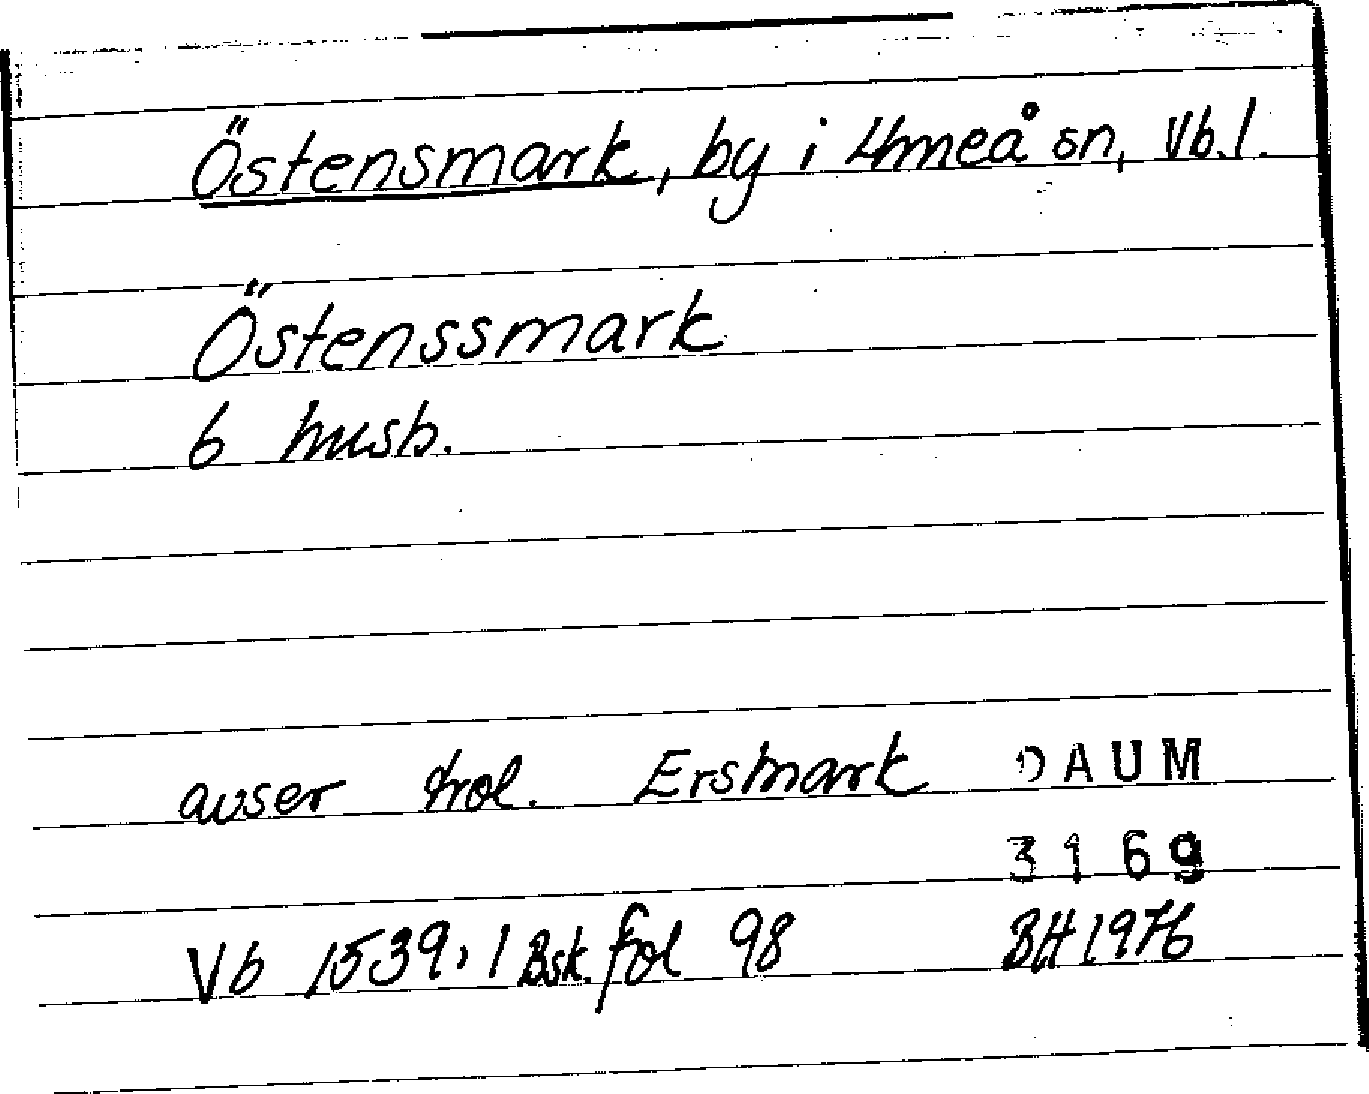 Östensmark, by i Umeå sn, Vb.l.
Östenssmark
6 husb.
avser trol. Ersmark DAUM
3169
Vb 1539:1 Bsk. fol 98 BH 1976